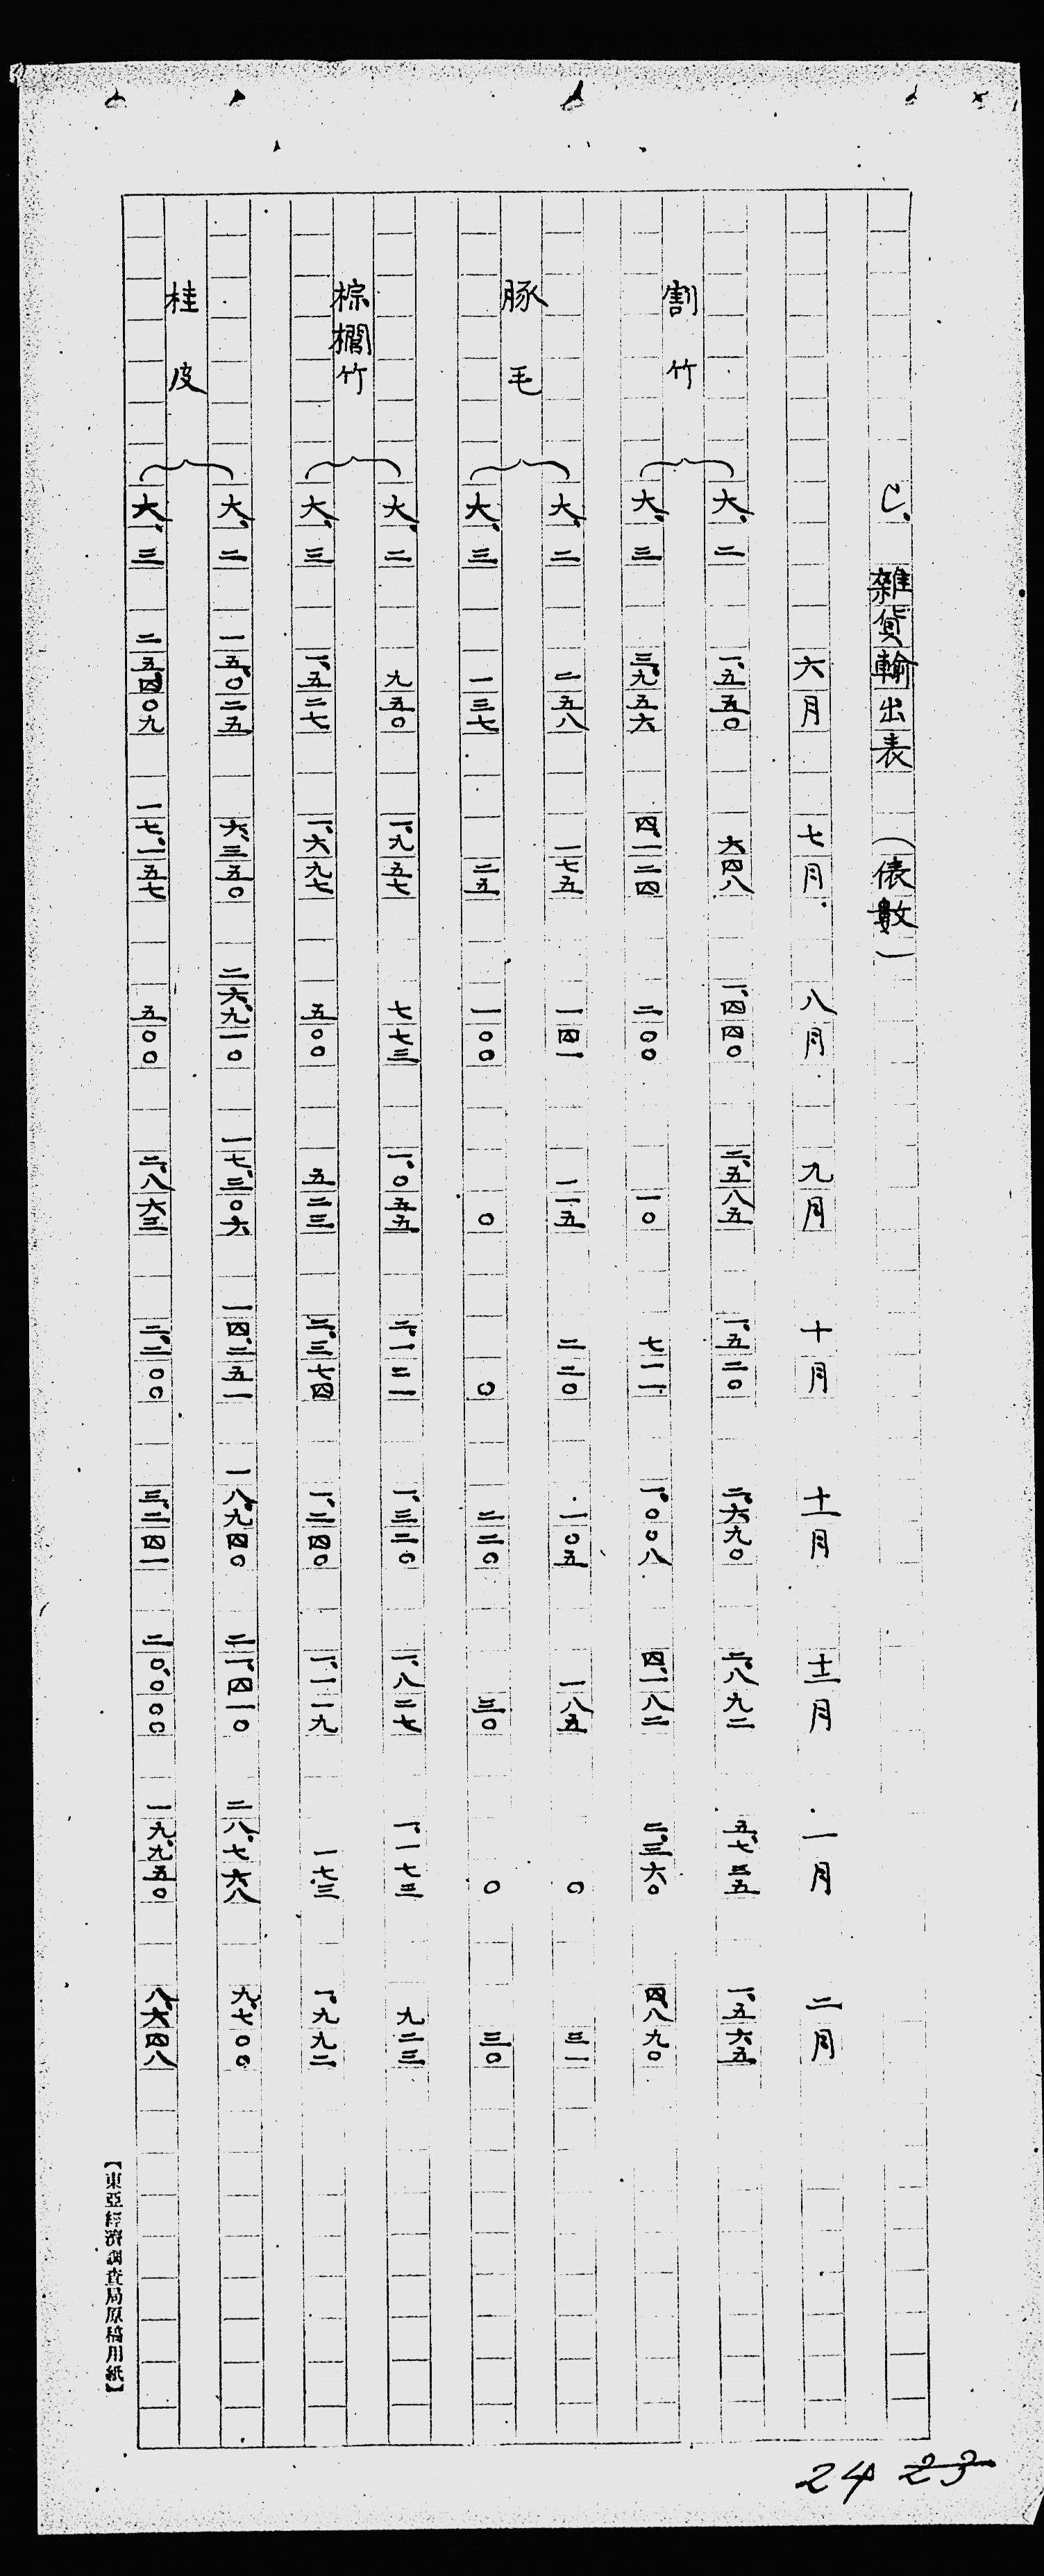 C. 雜貨輸出表 (俵數)
六月 七月 八月 九月 十月 十一月 十二月 一月 二月
割竹
大、二 一、五五〇 六四八 一、四四〇 二、五八五 一、五二〇 二、六九〇 二、八九二 五、七三五 一、五六五
大、三 三、九五六 四、一二四 二〇〇 一〇 七一一 一、〇〇八 四、一八二 二、三六〇 四、八九〇
豚毛
大、二 二五八 一七五 一四一 二二〇 一〇五 一八五 〇 三一
大、三 一三七 二五 一〇〇 〇 〇 二二〇 三〇 〇 三〇
棕櫚竹
大、二 九五〇 一、九五七 七七三 一、〇五五 二、一二一 一、三二〇 一、八二七 一、一七三 九二三
大、三 一、五二七 一、六九七 五〇〇 五二三 三、三七四 一、二四〇 一、一一九 一七三 一、九九二
桂皮
大、二 一五、〇二五 六、三五〇 二六、九一〇 一七、三〇六 一四、二五一 一八、九四〇 二一、四一〇 二八、七六八 九、七〇〇
大、三 二五、四〇九 一七、一五七 五〇〇 二、八六三 二、二〇〇 三、二四一 二〇、〇〇〇 一九、九五〇 八、六四八
【東亞經濟調査局原稿用紙】
24 23